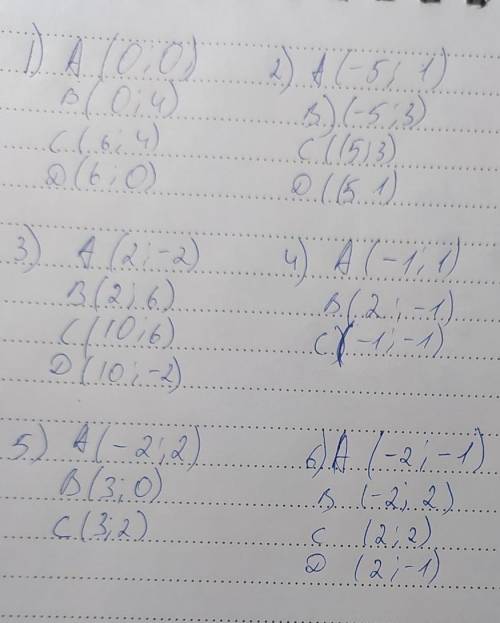 1) A (0;0)
B(0;4)
C(6;4)
D(6;0)
2) A(-5; 1)
B)(-5;3)
C((5;3)
D((5 1)
3) A(2;-2)
B(2;6)
C(10;6)
D(10;-2)
4) A(-1;1)
B(2;-1)
C(-1;-1)
5) A(-2;2)
B(3;0)
C(3;2)
6) A (-2;-1)
B (-2; 2)
C (2;2)
D (2;-1)